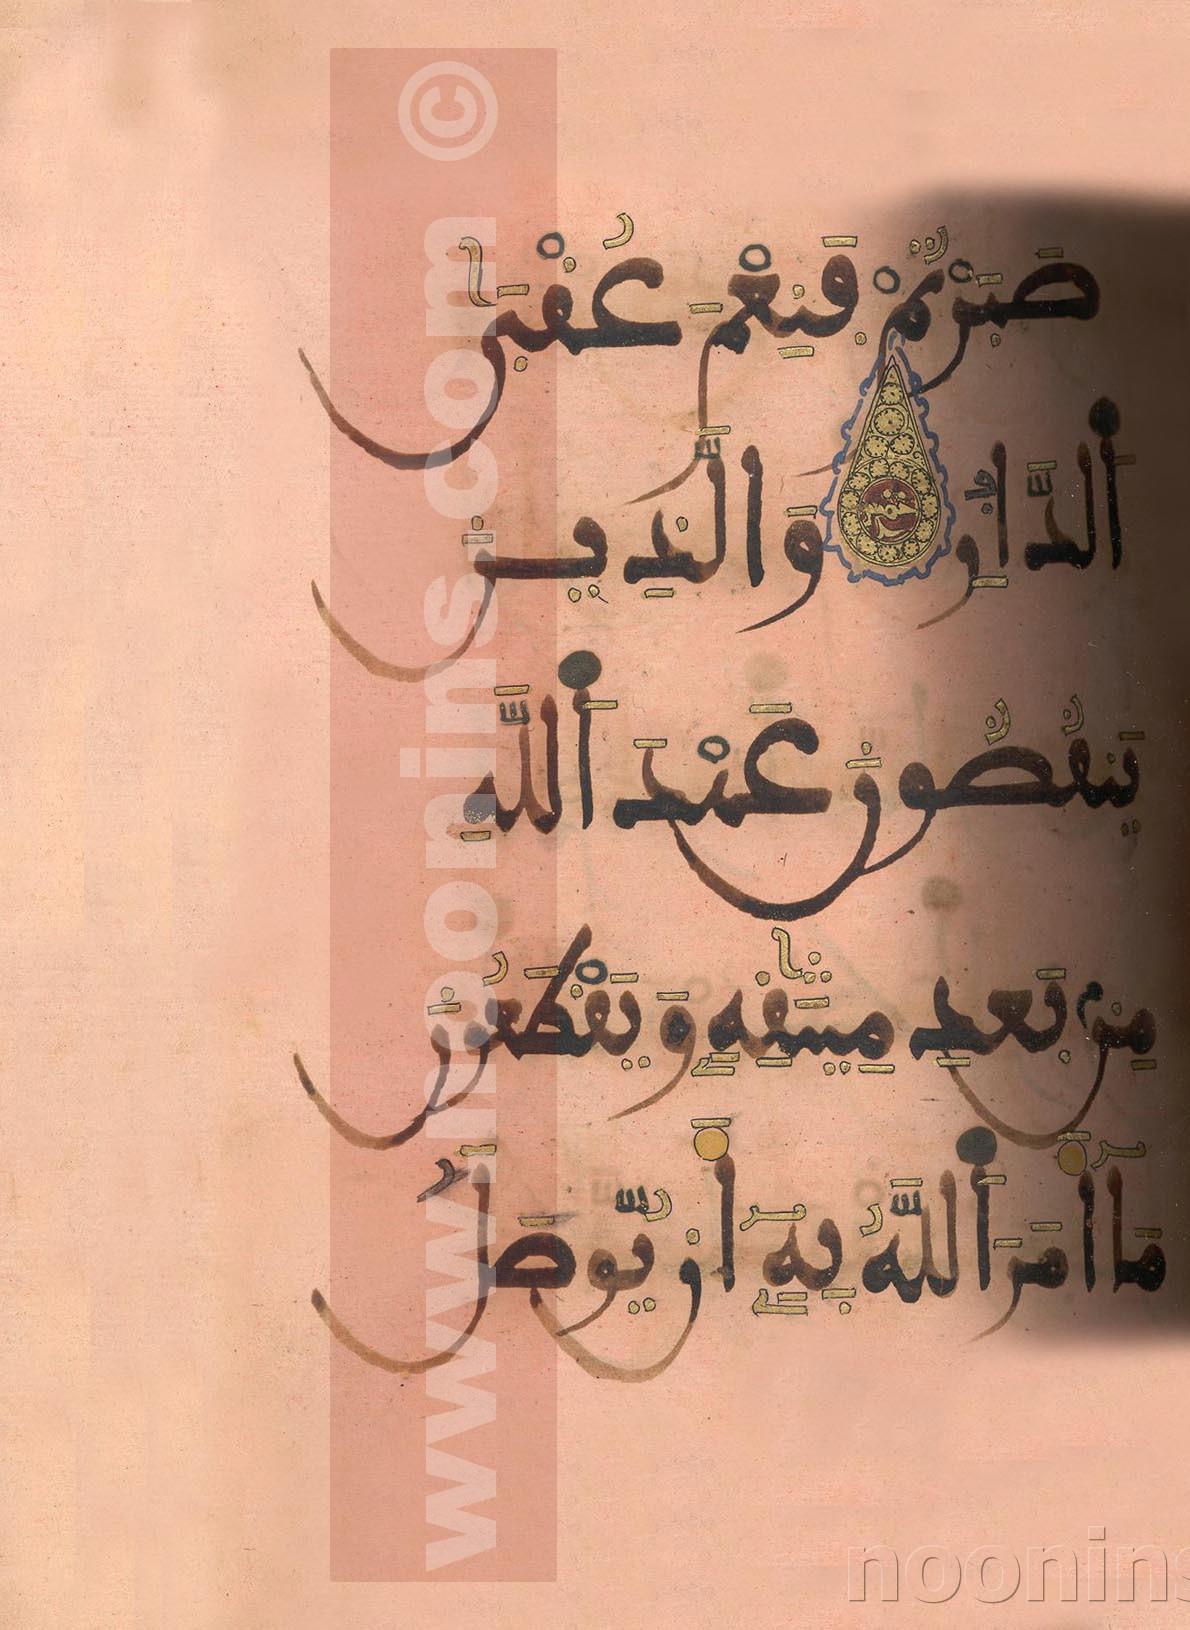 صَبَرْتُمْ فَنِعْمَ عُقْبَى
اَلدَّارِ وَالَّذِينَ
يَنقُضُونَ عَهْدَ اَللَّهِ
مِنۢ بَعْدِ مِيثَٰقِهِۦ وَيَقْطَعُونَ
مَآ أَمَرَ اَللَّهُ بِهِۦٓ أَنْ يُّوصَلَ
www.noonins.com ©
noonins